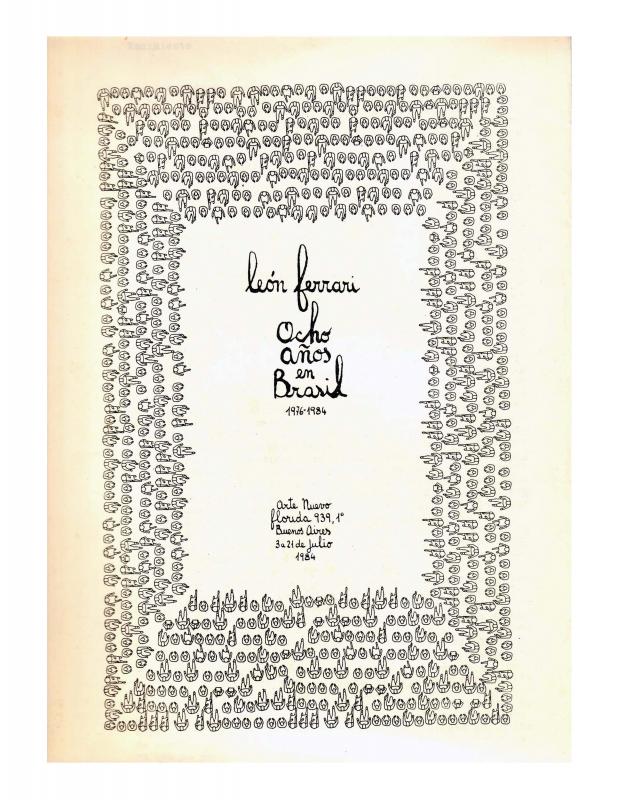 león ferrari
Ocho
años
en
Brasil
1976-1984
Arte Nuevo
florida 939, 1°
Buenos Aires
3 a 21 de Julio
1984